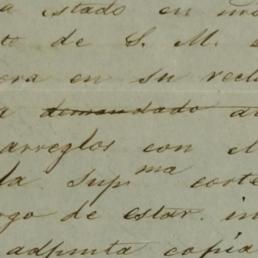 a estado en
to de S. M.
era en su recl
a demandado a
arreglos con el
la Sup ma corte
go de estar. in
adjunta copia